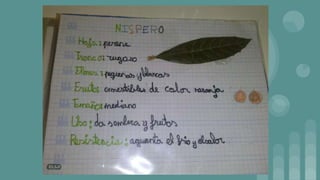 NISPERO
Hoja: perenne
Tronco: rugoso
Flores: pequeñas y blancas
Frutos: comestibles de color naranja
Tamaño: mediano
Uso: da sombra y frutos
Resistencia: aguanta el frío y el calor